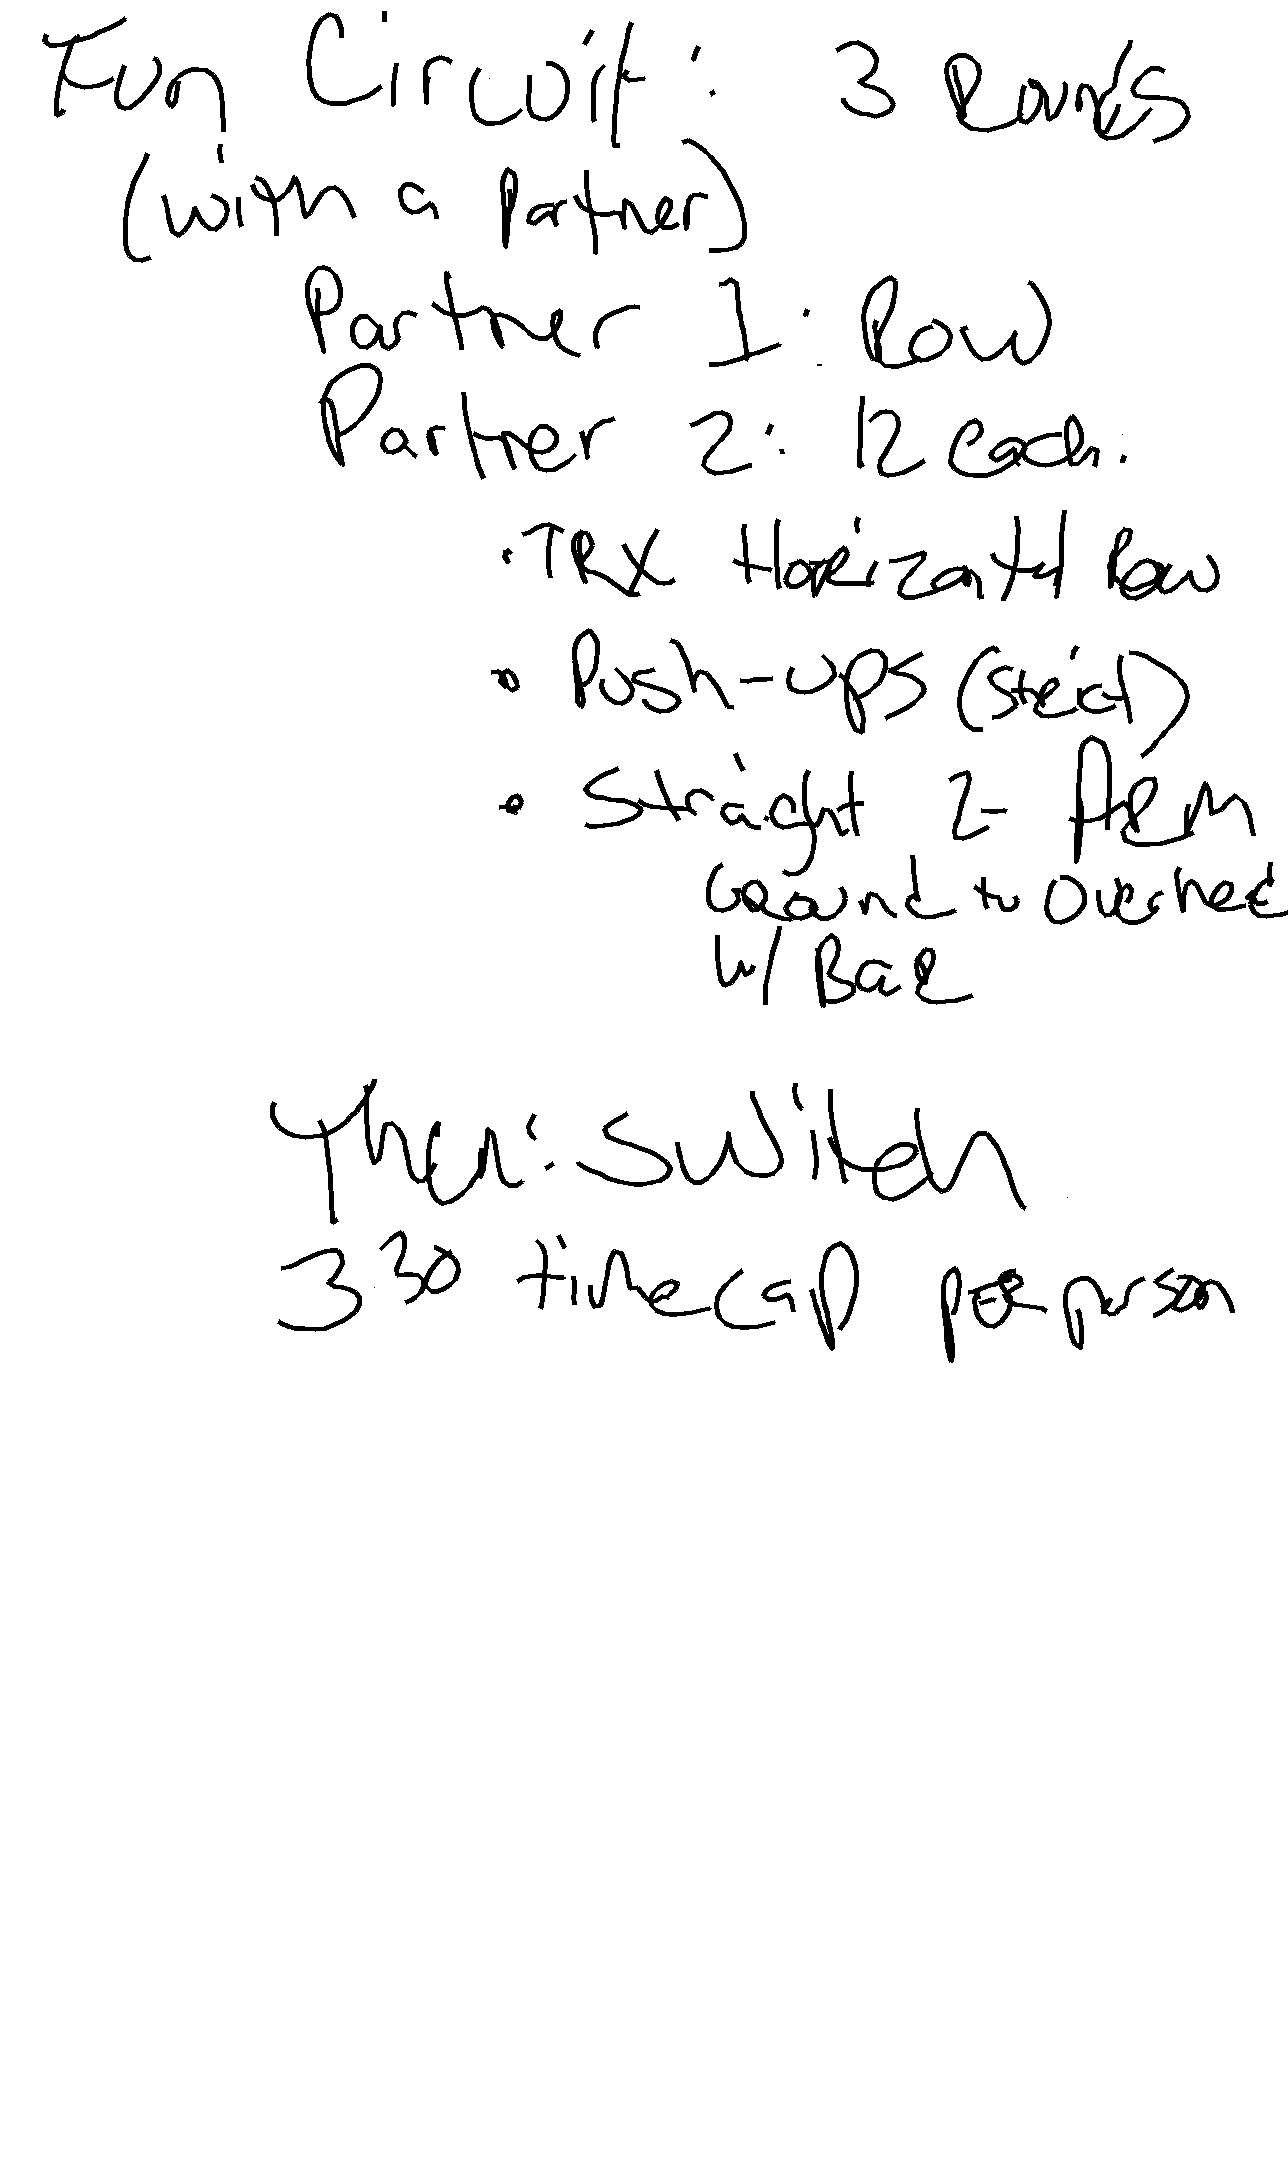 Fun Circuit: 3 Rounds
(with a partner)
Partner 1: Row
Partner 2: 12 each.
• TRX Horizontal Row
• Push-ups (strict)
• Straight 2-ARM
Ground to Overhead
w/ BAR
Then: Switch
3 30 time cap per person